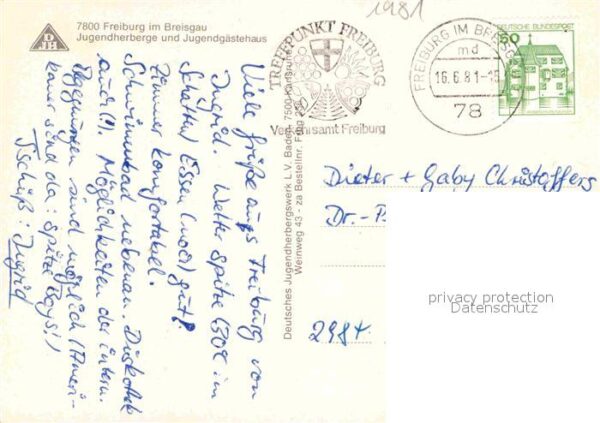 1981
7800 Freiburg im Breisgau
Jugendherberge und Jugendgästehaus
DJH
TREFFPUNKT FREIBURG
Verkehrsamt Freiburg
FREIBURG IM BREISG
md
16.6.81-18
78
DEUTSCHE BUNDESPOST
50
Viele Grüße aus Freiburg von
Ingrid. Wetter spitze (50°C im
Schatten) Essen (noch) gut!
Zimmer komfortabel.
Schwimmbad nebenan. Diskothek
auch (!). Möglichkeiten der intern.
Begegnungen sind möglich (Ameri-
kaner sind da: spitze Boys!)
Tschüß: Ingrid
Deutsches Jugendherbergswerk L.V. Baden, 7500 Karlsruhe
Weinweg 43 - za Bestellnr.
Dieter + Gaby Christoffers
Dr.-
2984
privacy protection
Datenschutz